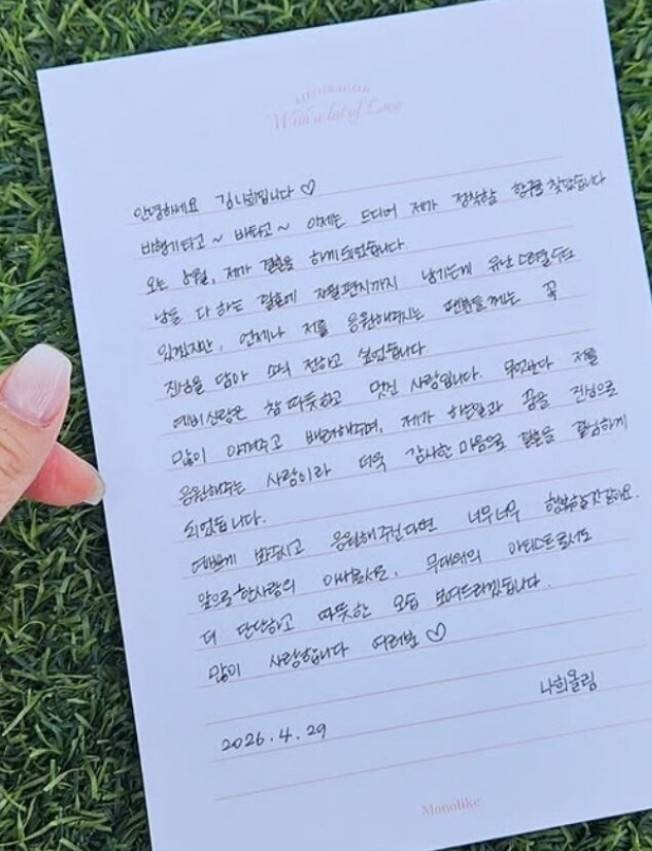 With a lot of Love
안녕하세요 김나희입니다 ♡
비행기타고 ~ 버스타고 ~ 이제는 드디어 제가 정착할 항구를 찾았습니다
오는 9월, 제가 결혼을 하게 되었습니다.
남들 다 하는 결혼에 자필편지까지 남기는게 유난스러울 수도
있겠지만, 언제나 저를 응원해주시는 팬분들께는 꼭
진심을 담아 소식 전하고 싶었습니다
예비신랑은 참 따뜻하고 멋진 사람입니다. 무엇보다 저를
많이 아껴주고 배려해주며, 제가 하는일과 꿈을 진심으로
응원해주는 사람이라 더욱 감사한 마음으로 결혼을 결심하게
되었습니다.
예쁘게 봐주시고 응원해 주신다면 너무너무 행복할것 같아요.
앞으로 한사람의 아내로서도, 무대위의 아티스트로서도
더 단단하고 따뜻한 모습 보여드리겠습니다.
많이 사랑합니다 여러분 ♡
나희올림
2026.4.29
Monolike